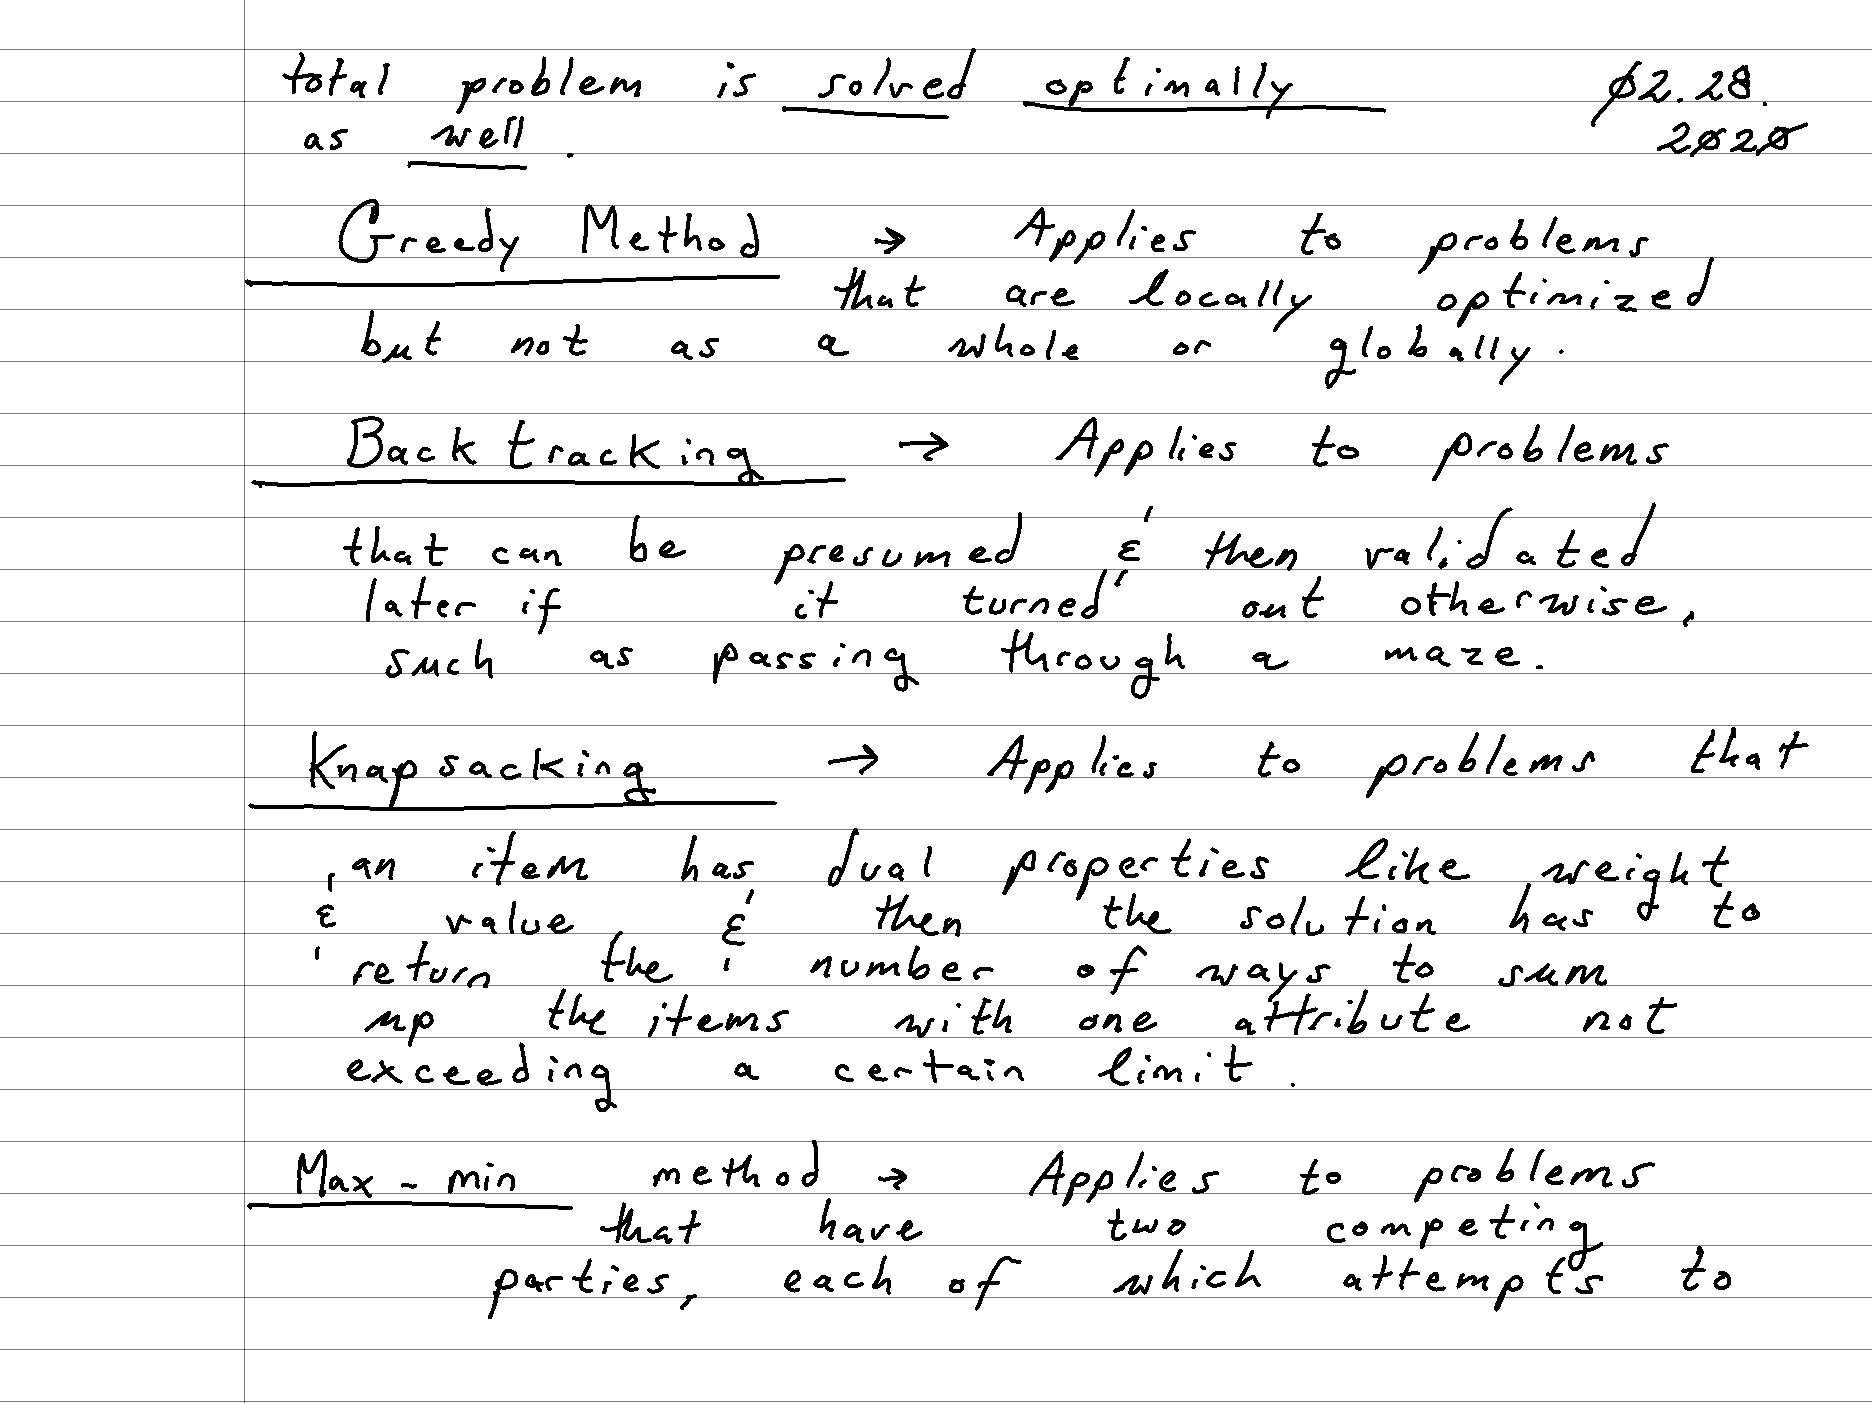 total problem is solved optimally 02.28.
as well. 2020
Greedy Method → Applies to problems
that are locally optimized
but not as a whole or globally.
Backtracking → Applies to problems
that can be presumed & then validated
later if it turned out otherwise,
such as passing through a maze.
Knapsacking → Applies to problems that
an item has dual properties like weight
& value, & then the solution has to
return the number of ways to sum
up the items with one attribute not
exceeding a certain limit.
Max-min method → Applies to problems
that have two competing
parties, each of which attempts to